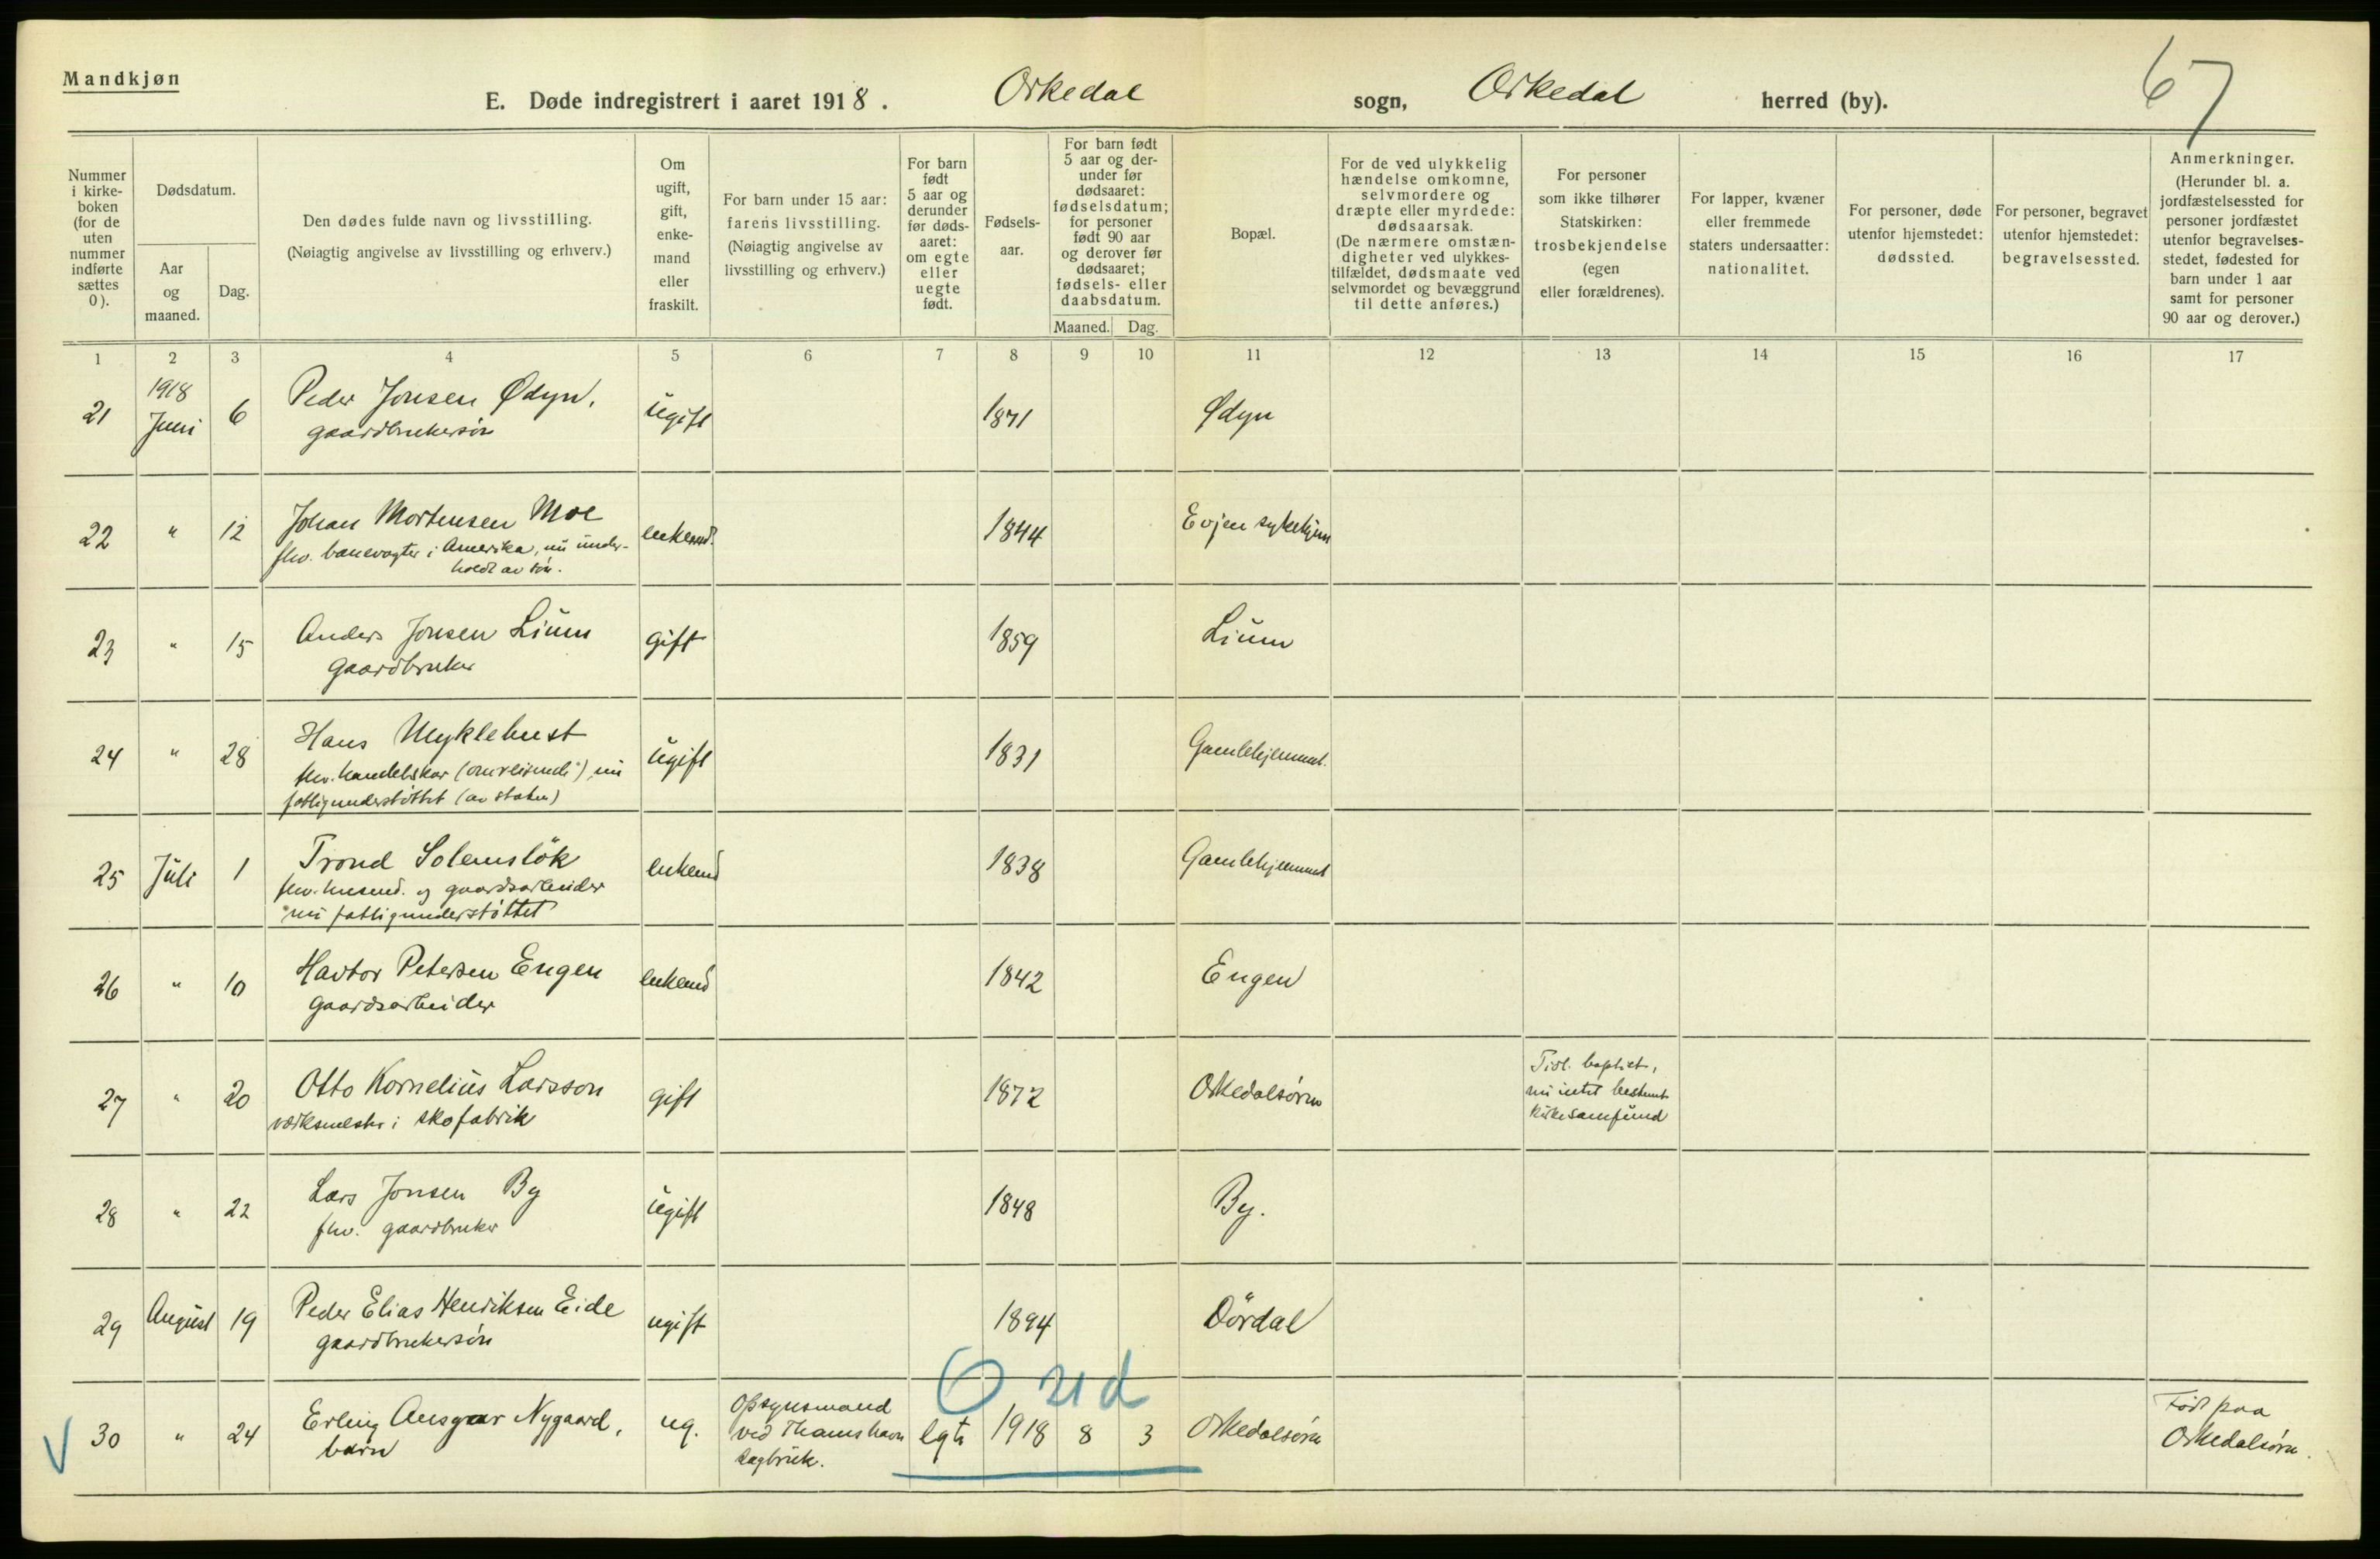 Mandkjøn
E. Døde indregistrert i aaret 1918. Orkedal sogn, Orkedal herred (by).
67
Nummer i kirke-boken (for de uten nummer indførte sættes 0).
Dødsdatum.
Aar og maaned.
Dag.
Den dødes fulde navn og livsstilling.
(Nøiagtig angivelse av livsstilling og erhverv.)
Om ugift, gift, enke-mand eller fraskilt.
For barn under 15 aar: farens livsstilling. (Nøiagtig angivelse av livsstilling og erhverv.)
For barn født 5 aar og derunder før døds-aaret: om egte eller uegte født.
Fødsels-aar.
For barn født 5 aar og der-under før dødsaaret: fødselsdatum; for personer født 90 aar og derover før dødsaaret; fødsels- eller daabsdatum.
Maaned. Dag.
Bopæl.
For de ved ulykkelig hændelse omkomne, selvmordere og dræpte eller myrdede: dødsaarsak. (De nærmere omstæn-digheter ved ulykkes-tilfældet, dødsmaate ved selvmordet og bevæggrund til dette anføres.)
For personer som ikke tilhører Statskirken: trosbekjendelse (egen eller forældrenes).
For lapper, kvæner eller fremmede staters undersaatter: nationalitet.
For personer, døde utenfor hjemstedet: dødssted.
For personer, begravet utenfor hjemstedet: begravelsessted.
Anmerkninger. (Herunder bl. a. jordfæstelsessted for personer jordfæstet utenfor begravelses-stedet, fødested for barn under 1 aar samt for personer 90 aar og derover.)
1 2 3 4 5 6 7 8 9 10 11 12 13 14 15 16 17
1918
21 Juni 6 Peder Jonsen Ødyn, ugift 1871 Ødyn
gaardbrukersøn
22 " 12 Johan Mortensen Moe enkemd. 1844 Evjen sykehjem
fhv. banevogter i Amerika, nu under-
holdt av søn.
23 " 15 Anders Jonsen Lium gift 1859 Lium
gaardbruker
24 " 28 Hans Myklebust ugift 1831 Gamlehjemmet.
fhv. handelskar (omreisende), nu
fattigunderstøttet (av staten)
25 Juli 1 Trond Solemsløk enkemd 1838 Gamlehjemmet
fhv. husmd. og gaardsarbeider
nu fattigunderstøttet
26 " 10 Havtor Petersen Engen enkemd 1842 Engen
gaardsarbeider
27 " 20 Otto Kornelius Larsson gift 1872 Orkedalsøren Tidl. baptist,
verksmester i skofabrik nu intet bestemt
kirkesamfund
28 " 22 Lars Jonsen By ugift 1848 By.
fhv. gaardbruker
29 August 19 Peder Elias Henriksen Eide ugift 1894 Dørdal
gaardbrukersøn
30 " 24 Erling Ansgar Nygaard, ug. Opsynsmand egte 1918 8 3 Orkedalsøren Født paa
barn ved Thamshavn Orkedalsøren.
sagbruk.